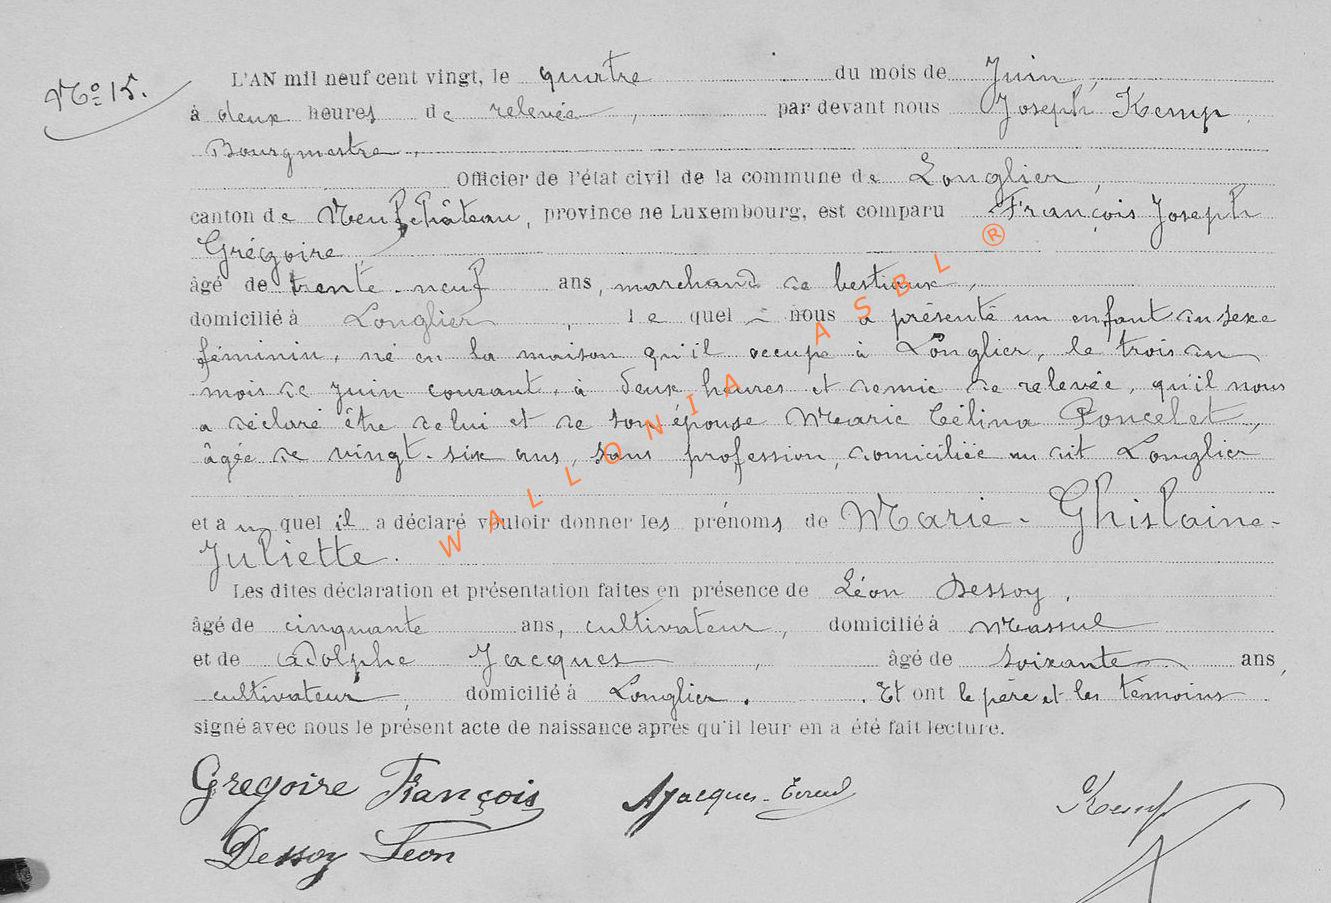 No 15.
L'AN mil neuf cent vingt, le quatre du mois de Juin,
à deux heures de relevée, par devant nous Joseph Kemp,
Bourgmestre,
Officier de l'état civil de la commune de Longlier,
canton de Neufchâteau, province de Luxembourg, est comparu François Joseph
Grégoire,
âgé de trente-neuf ans, marchand de bestiaux,
domicilié à Longlier, lequel nous a présenté un enfant du sexe
féminin, né en la maison qu'il occupe à Longlier, le trois du
mois de Juin courant, à deux heures et demie de relevée, qu'il nous
a déclaré être de lui et de son épouse Marie Célina Poncelet,
âgée de vingt-six ans, sans profession, domiciliée au dit Longlier
et auquel il a déclaré vouloir donner les prénoms de Marie-Ghislaine-
Juliette.
Les dites déclaration et présentation faites en présence de Léon Dessoy,
âgé de cinquante ans, cultivateur, domicilié à Massul
et de Adolphe Jacques, âgé de soixante ans,
cultivateur, domicilié à Longlier. Et ont le père et les témoins
signé avec nous le présent acte de naissance après qu'il leur en a été fait lecture.
Grégoire François AJacques- Kemp
Dessoy Leon
WALLONIA ASBL ®